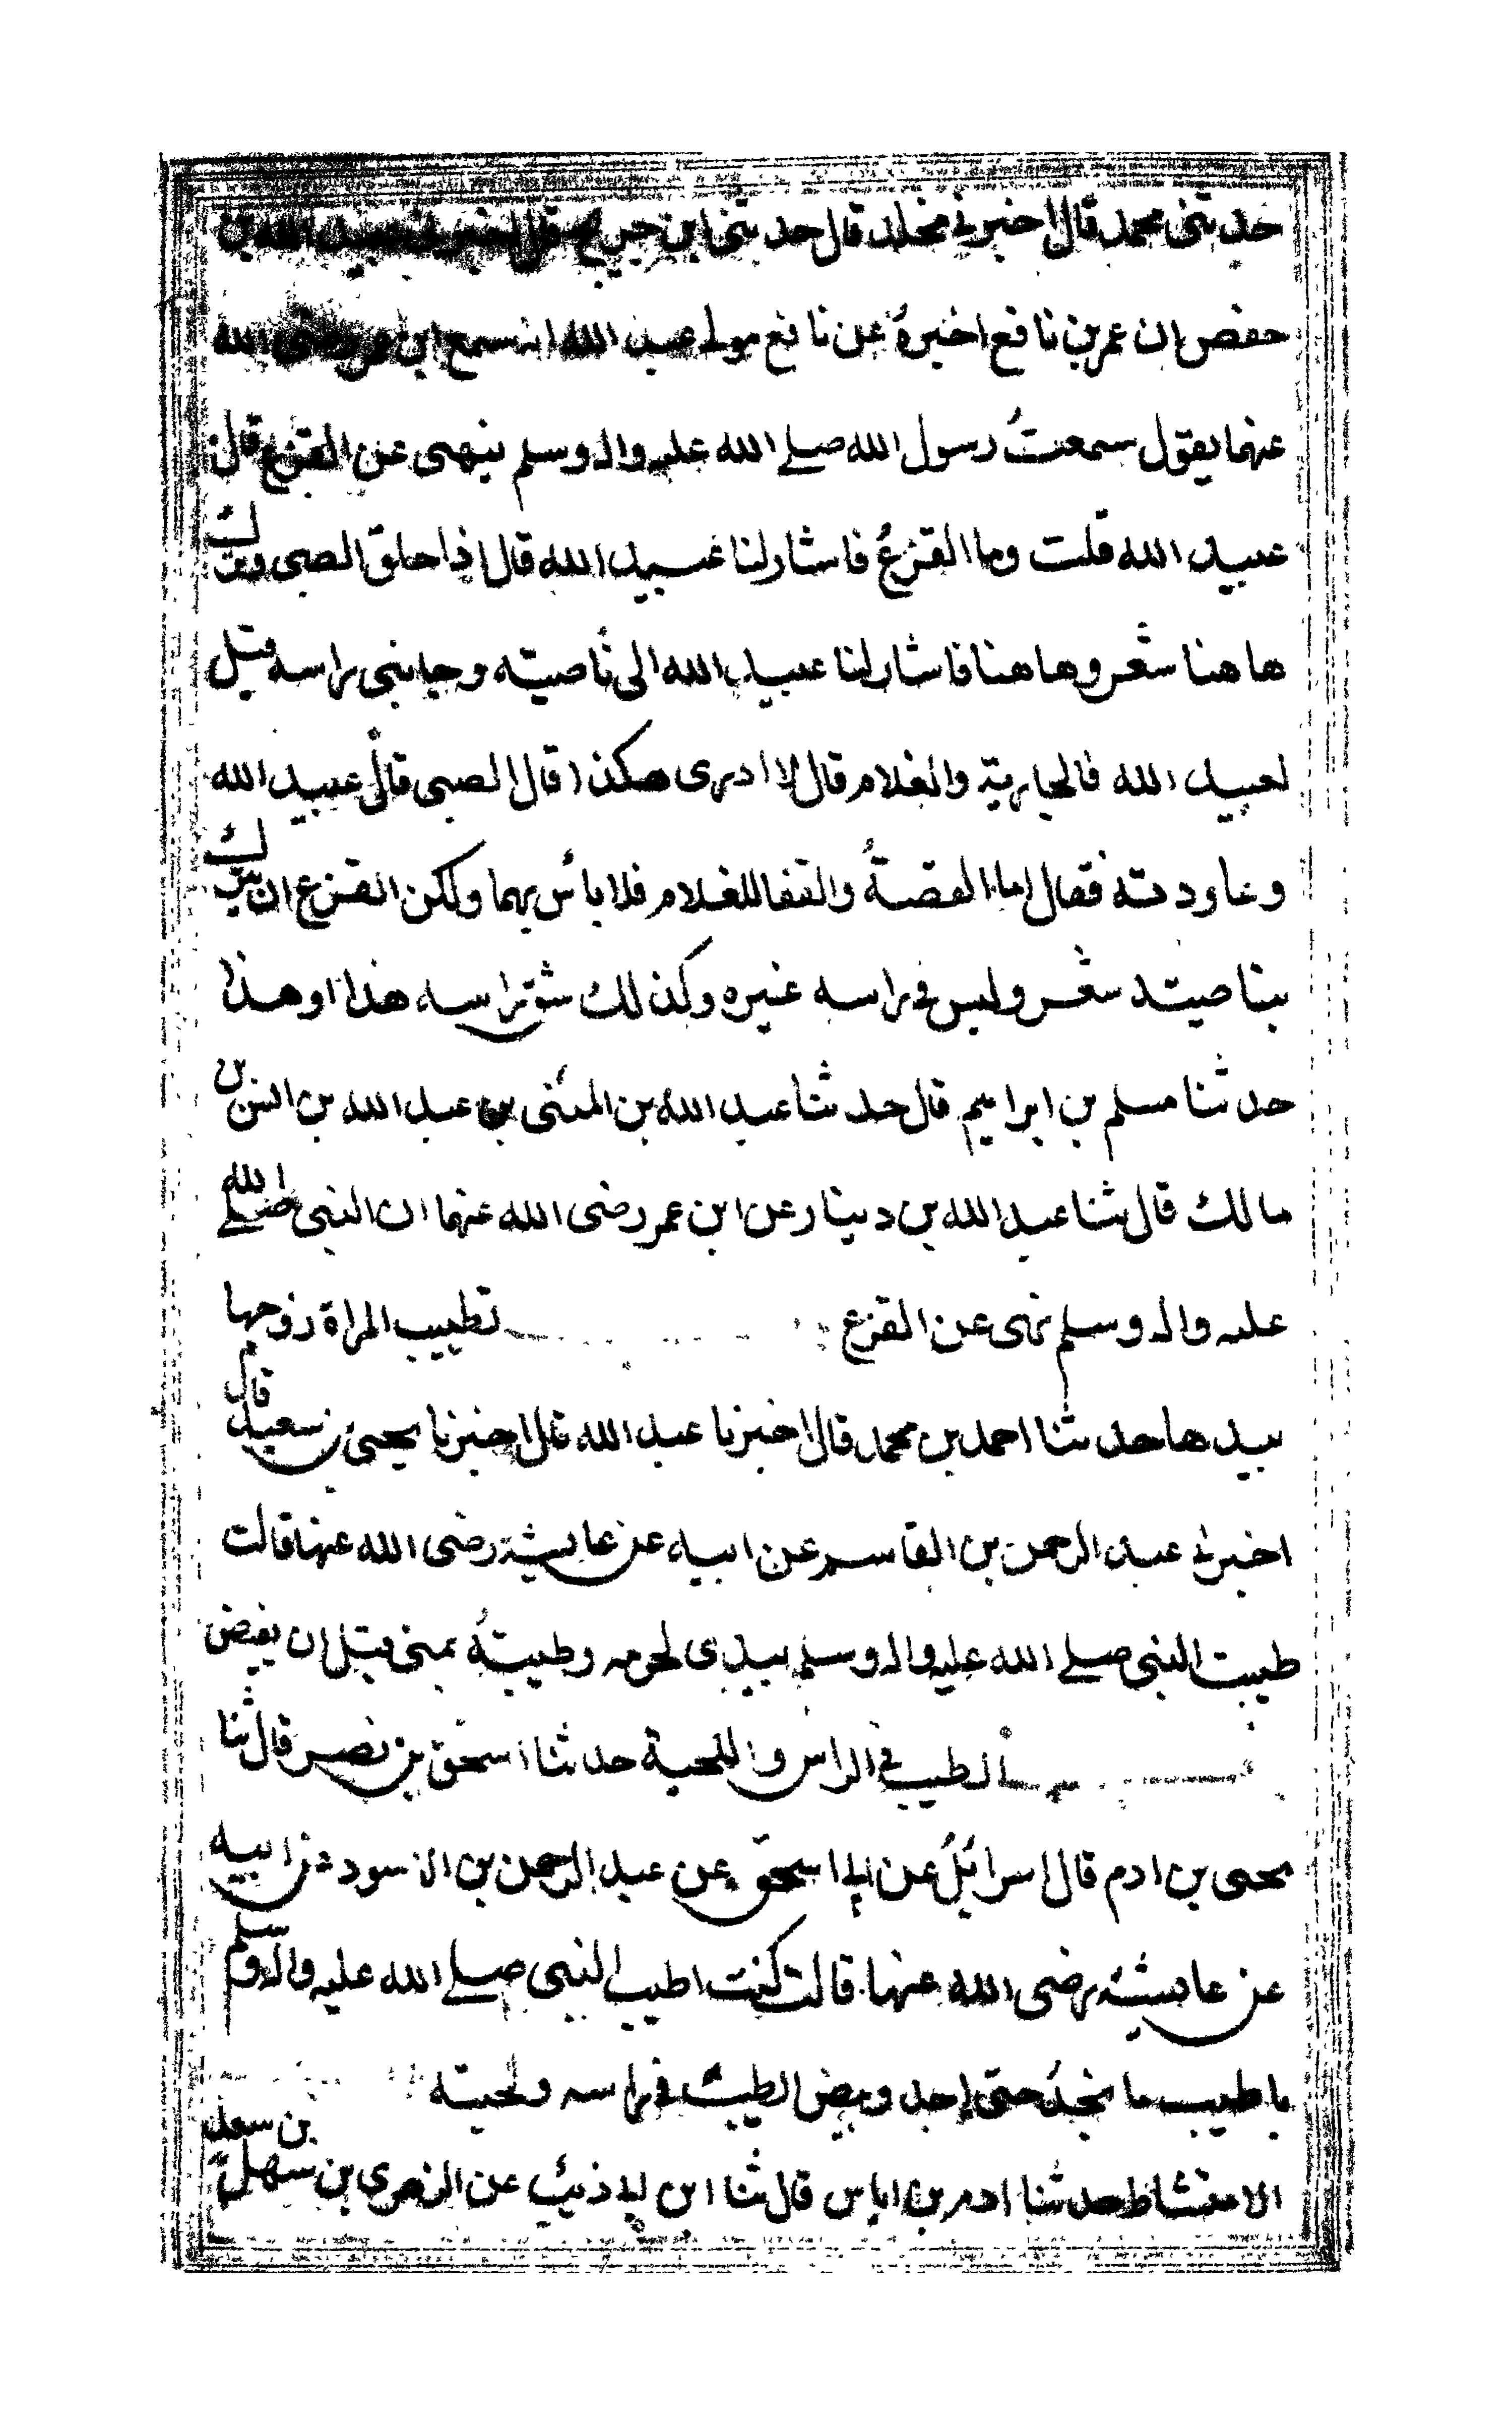 حدثنى محمد قال اخبرنى مخلد قال حدثنى ابن جريج قال اخبرنى عبيد الله بن
حفص ان عمر بن نافع اخبره عن نافع مولى عبد الله انه سمع ابن عمر رضى الله
عنهما يقول سمعت رسول الله صلى الله عليه واله وسلم ينهى عن القزع قال
عبيد الله قلت وما القزع فاشار لنا عبيد الله قال اذا حلق الصبى وترك
هاهنا شعر وهاهنا فاشار لنا عبيد الله الى ناصيته وجابنى راسه قيل
لعبيد الله فالجارية والغلام قال لا ادرى هكذا قال الصبى قال عبيد الله
وعاودته فقال اما القصة والقفا للغلام فلا باس بهما ولكن القزع ان يترك
بناصيته شعر وليس فى راسه غيره وكذلك شق راسه هذا او هذا
حدثنا مسلم بن ابراهيم قال حدثنا عبد الله بن المثنى بن عبد الله بن انس بن
مالك قال ثنا عبد الله بن دينار عن ابن عمر رضى الله عنهما ان النبى صلى الله
عليه واله وسلم نهى عن القزع تطييب المراة زوجها
بيدها حدثنا احمد بن محمد قال اخبرنا عبد الله قال اخبرنا يحيى بن سعيد قال
اخبرنى عبد الرحمن بن القاسم عن ابيه عن عايشة رضى الله عنها قالت
طيبت النبى صلى الله عليه واله وسلم بيدى لحرمه وطيبته بمنى قبل ان يفيض
الطيب فى الراس واللحية حدثنا اسحق بن نصر قال ثنا
يحيى بن ادم قال اسرائيل عن ابى اسحق عن عبد الرحمن بن الاسود عن ابيه
عن عايشة رضى الله عنها قالت كنت اطيب النبى صلى الله عليه واله وسلم
باطيب ما نجد حتى اجد وبيض الطيب فى راسه ولحيته
الامتشاط حدثنا ادم بن اياس قال ثنا ابن ابى ذئب عن الزهرى بن سهل بن سعد